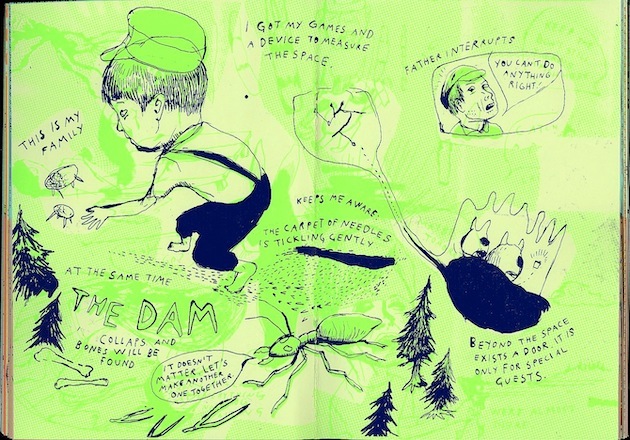 I GOT MY GAMES AND
A DEVICE TO MEASURE
THE SPACE.
FATHER INTERRUPTS
YOU CAN'T DO
ANYTHING
RIGHT!
THIS IS MY
FAMILY
KEEPS ME AWAKE.
THE CARPET OF NEEDLES
IS TICKLING GENTLY
AT THE SAME TIME
THE DAM
COLLAPS AND
BONES WILL BE
FOUND
IT DOESN'T
MATTER. LET'S
MAKE ANOTHER
ONE TOGETHER
BEYOND THE SPACE
EXISTS A DOOR. IT IS
ONLY FOR SPECIAL
GUESTS.